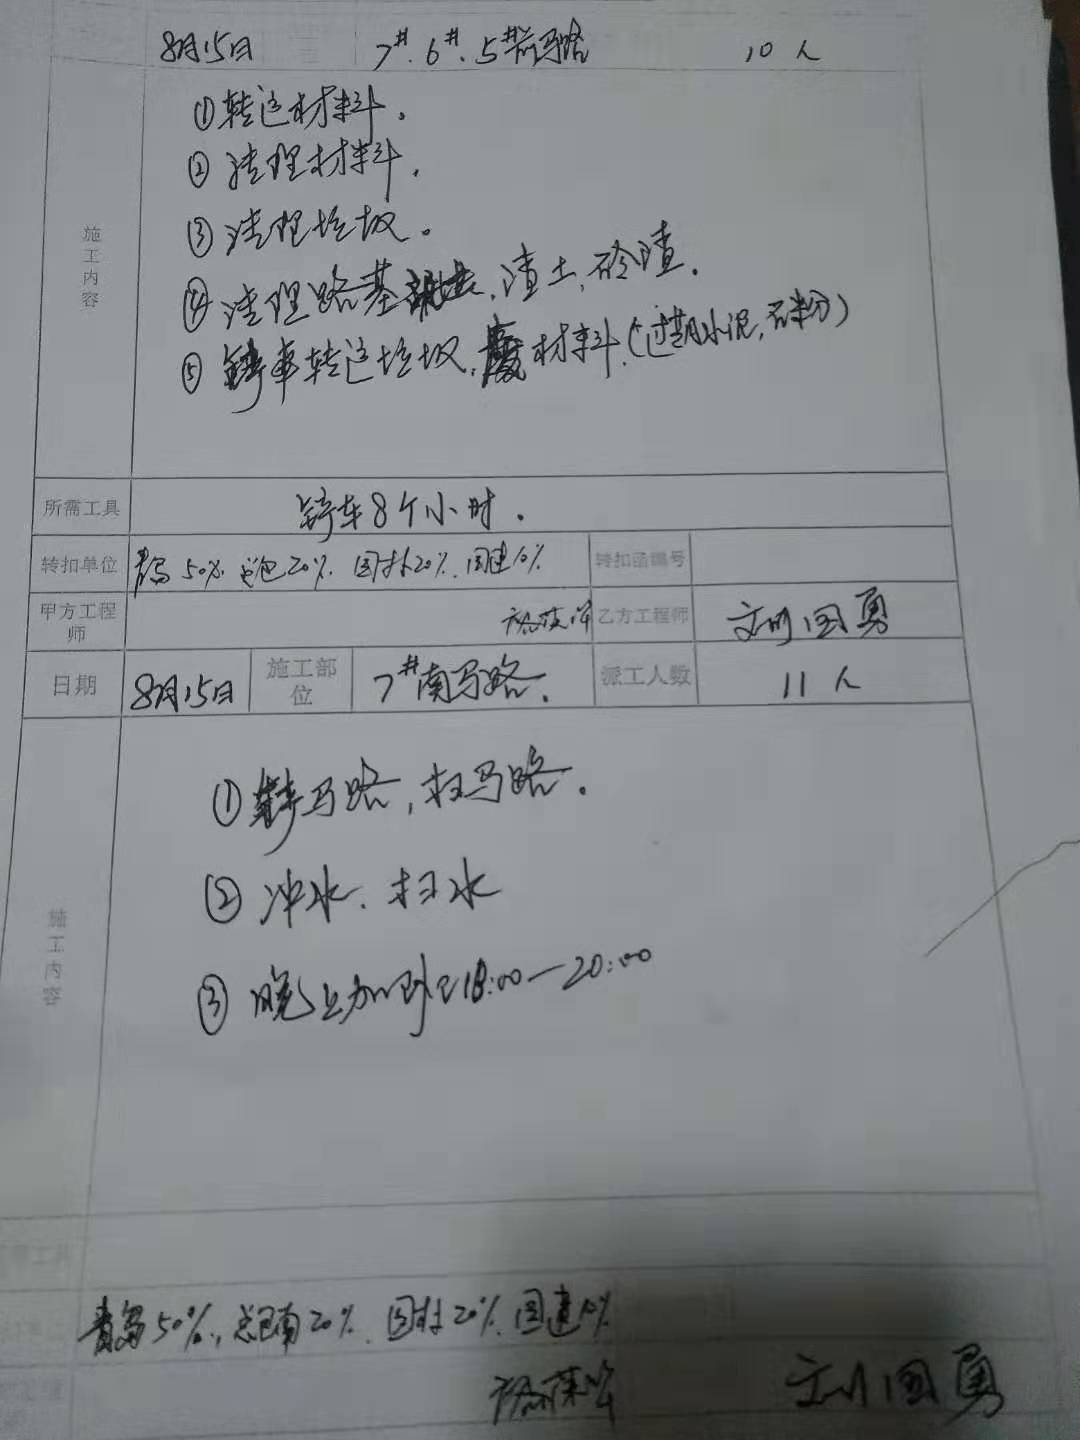 8月15日 7#.6#.5#前马路 10人
施工内容
①转运材料.
②清理材料.
③清理垃圾。
④清理路基,渣土,砼渣.
⑤铲车转运垃圾,废材料.(过期水泥,石粉)
所需工具 铲车8个小时.
转扣单位 青岛50%. 总包20%. 国材20%. 国建10% 转扣函编号
甲方工程师 乙方工程师 刘国勇
日期 8月15日 施工部位 7#南马路. 派工人数 11人
施工内容
①铲马路,扫马路.
②冲水.扫水
③晚上加班18:00—20:00
青岛50%,总包南20%. 国材20%. 国建10%
刘国勇